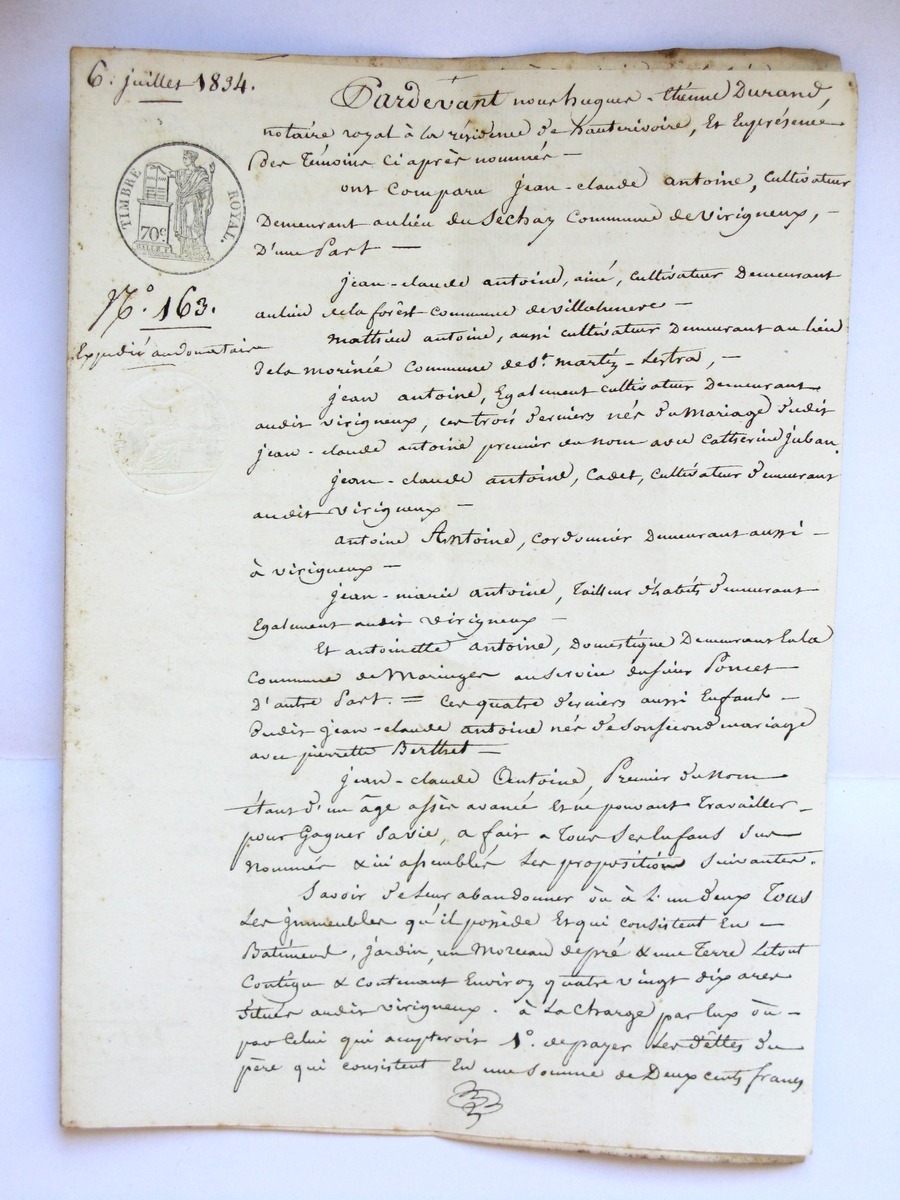 6. juillet 1834.
TIMBRE ROYAL.
70 c.
N.° 163.
Expédié au donataire
Pardevant nous hugues-étienne Durand,
notaire royal à la résidence de hauterivoire, Et En présence
des Témoins ci après nommés —
ont comparu jean-claude antoine, cultivateur
Demeurant au lieu du Sechay commune de virigneux, —
D'une Part —
jean-claude antoine, ainé, cultivateur Demeurant
au lieu de la forêst commune de villechenere —
Mathieu antoine, aussi cultivateur Demeurant au lieu
de la morinée commune de S.t martin-Lestra, —
jean antoine, Egalement cultivateur Demeurant
audit virigneux, ces trois derniers nés du Mariage dudit
jean-claude antoine premier du nom avec catherine juban.
jean-claude antoine, Cadet, cultivateur demeurant
audit virigneux —
antoine Antoine, cordonnier Demeurant aussi —
à virigneux —
jean-marie antoine, Tailleur d'habits demeurant
Egalement audit virigneux —
Et antoinette antoine, Domestique Demeurant En la
commune de Maringer au service du sieur Poncet
D'autre Part. = Ces quatre derniers aussi Enfans —
dudit jean-claude antoine nés de son second mariage
avec pierrette Berthet —
jean-claude Antoine, Premier du nom
étant d'un âge assès avancé Et ne pouvant Travailler —
pour Gagner sa vie, a fait a Tous ses Enfans sus
nommés & ici assemblés Les propositions suivantes.
Savoir de Leur abandonner où à L'un deux Tous
Les jmmeubles qu'il possède Et qui consistent En —
Batiment, jardin, un Morceau de pré & une Terre Le tout
contigu & contenant Environ quatre vingt dix ares
situés audit virigneux. à La charge par Eux où —
par Celui qui accepterois 1.° de payer Les dêttes du
père qui consistent En une somme de Deux cents francs